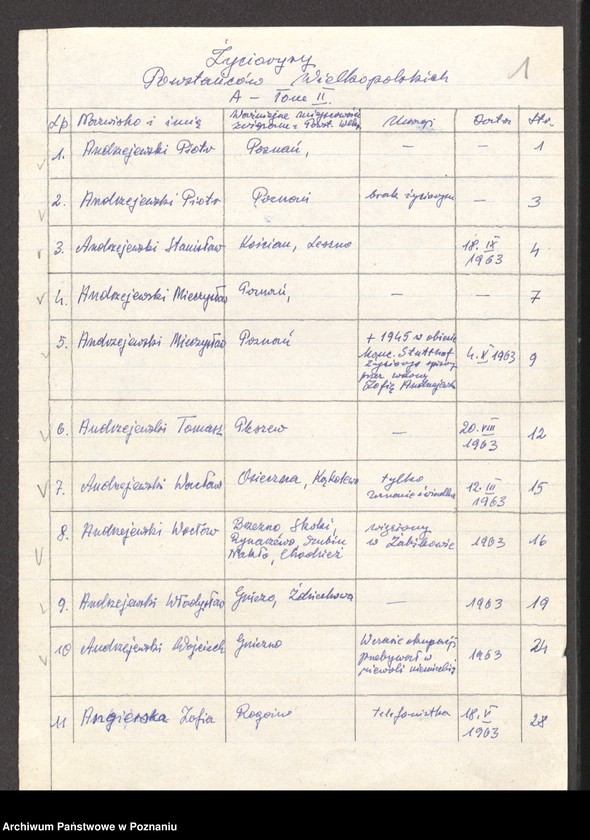 Życiorysy
1
Powstańców Wielkopolskich
A – Tom II.
Lp Nazwisko i imię Ważniejsze miejscowości związane z Powst. Wlkp. Uwagi Data Str.
1. Andrzejewski Piotr Poznań, — — 1
2. Andrzejewski Piotr Poznań brak życiorysu — 3
3. Andrzejewski Stanisław Kościan, Leszno 18. IX 1963 4
4. Andrzejewski Mieczysław Poznań, — — 7
5. Andrzejewski Mieczysław Poznań + 1945 w obozie
konc. Stutthof 4. V 1963 9
Życiorys spisany
przez wdowę
Zofię Andrzejewską
6. Andrzejewski Tomasz Pleszew — 20. VIII 1963 12
7. Andrzejewski Wacław Osieczna, Kąkolewo tylko
zeznanie świadka 12. III 1963 15
8. Andrzejewski Wacław Brzezno Skoki,
Rynarzewo, Szubin
Nakło, Chodzież więziony
w Żabikowie 1963 16
9. Andrzejewski Władysław Gniezno, Zdziechowa — 1963 19
10 Andrzejewski Wojciech Gniezno W czasie okupacji
przebywał w
niewoli niemieckiej 1963 24
11 Angierska Zofia Rogoźno telefonistka 18. V 1963 28
Archiwum Państwowe w Poznaniu